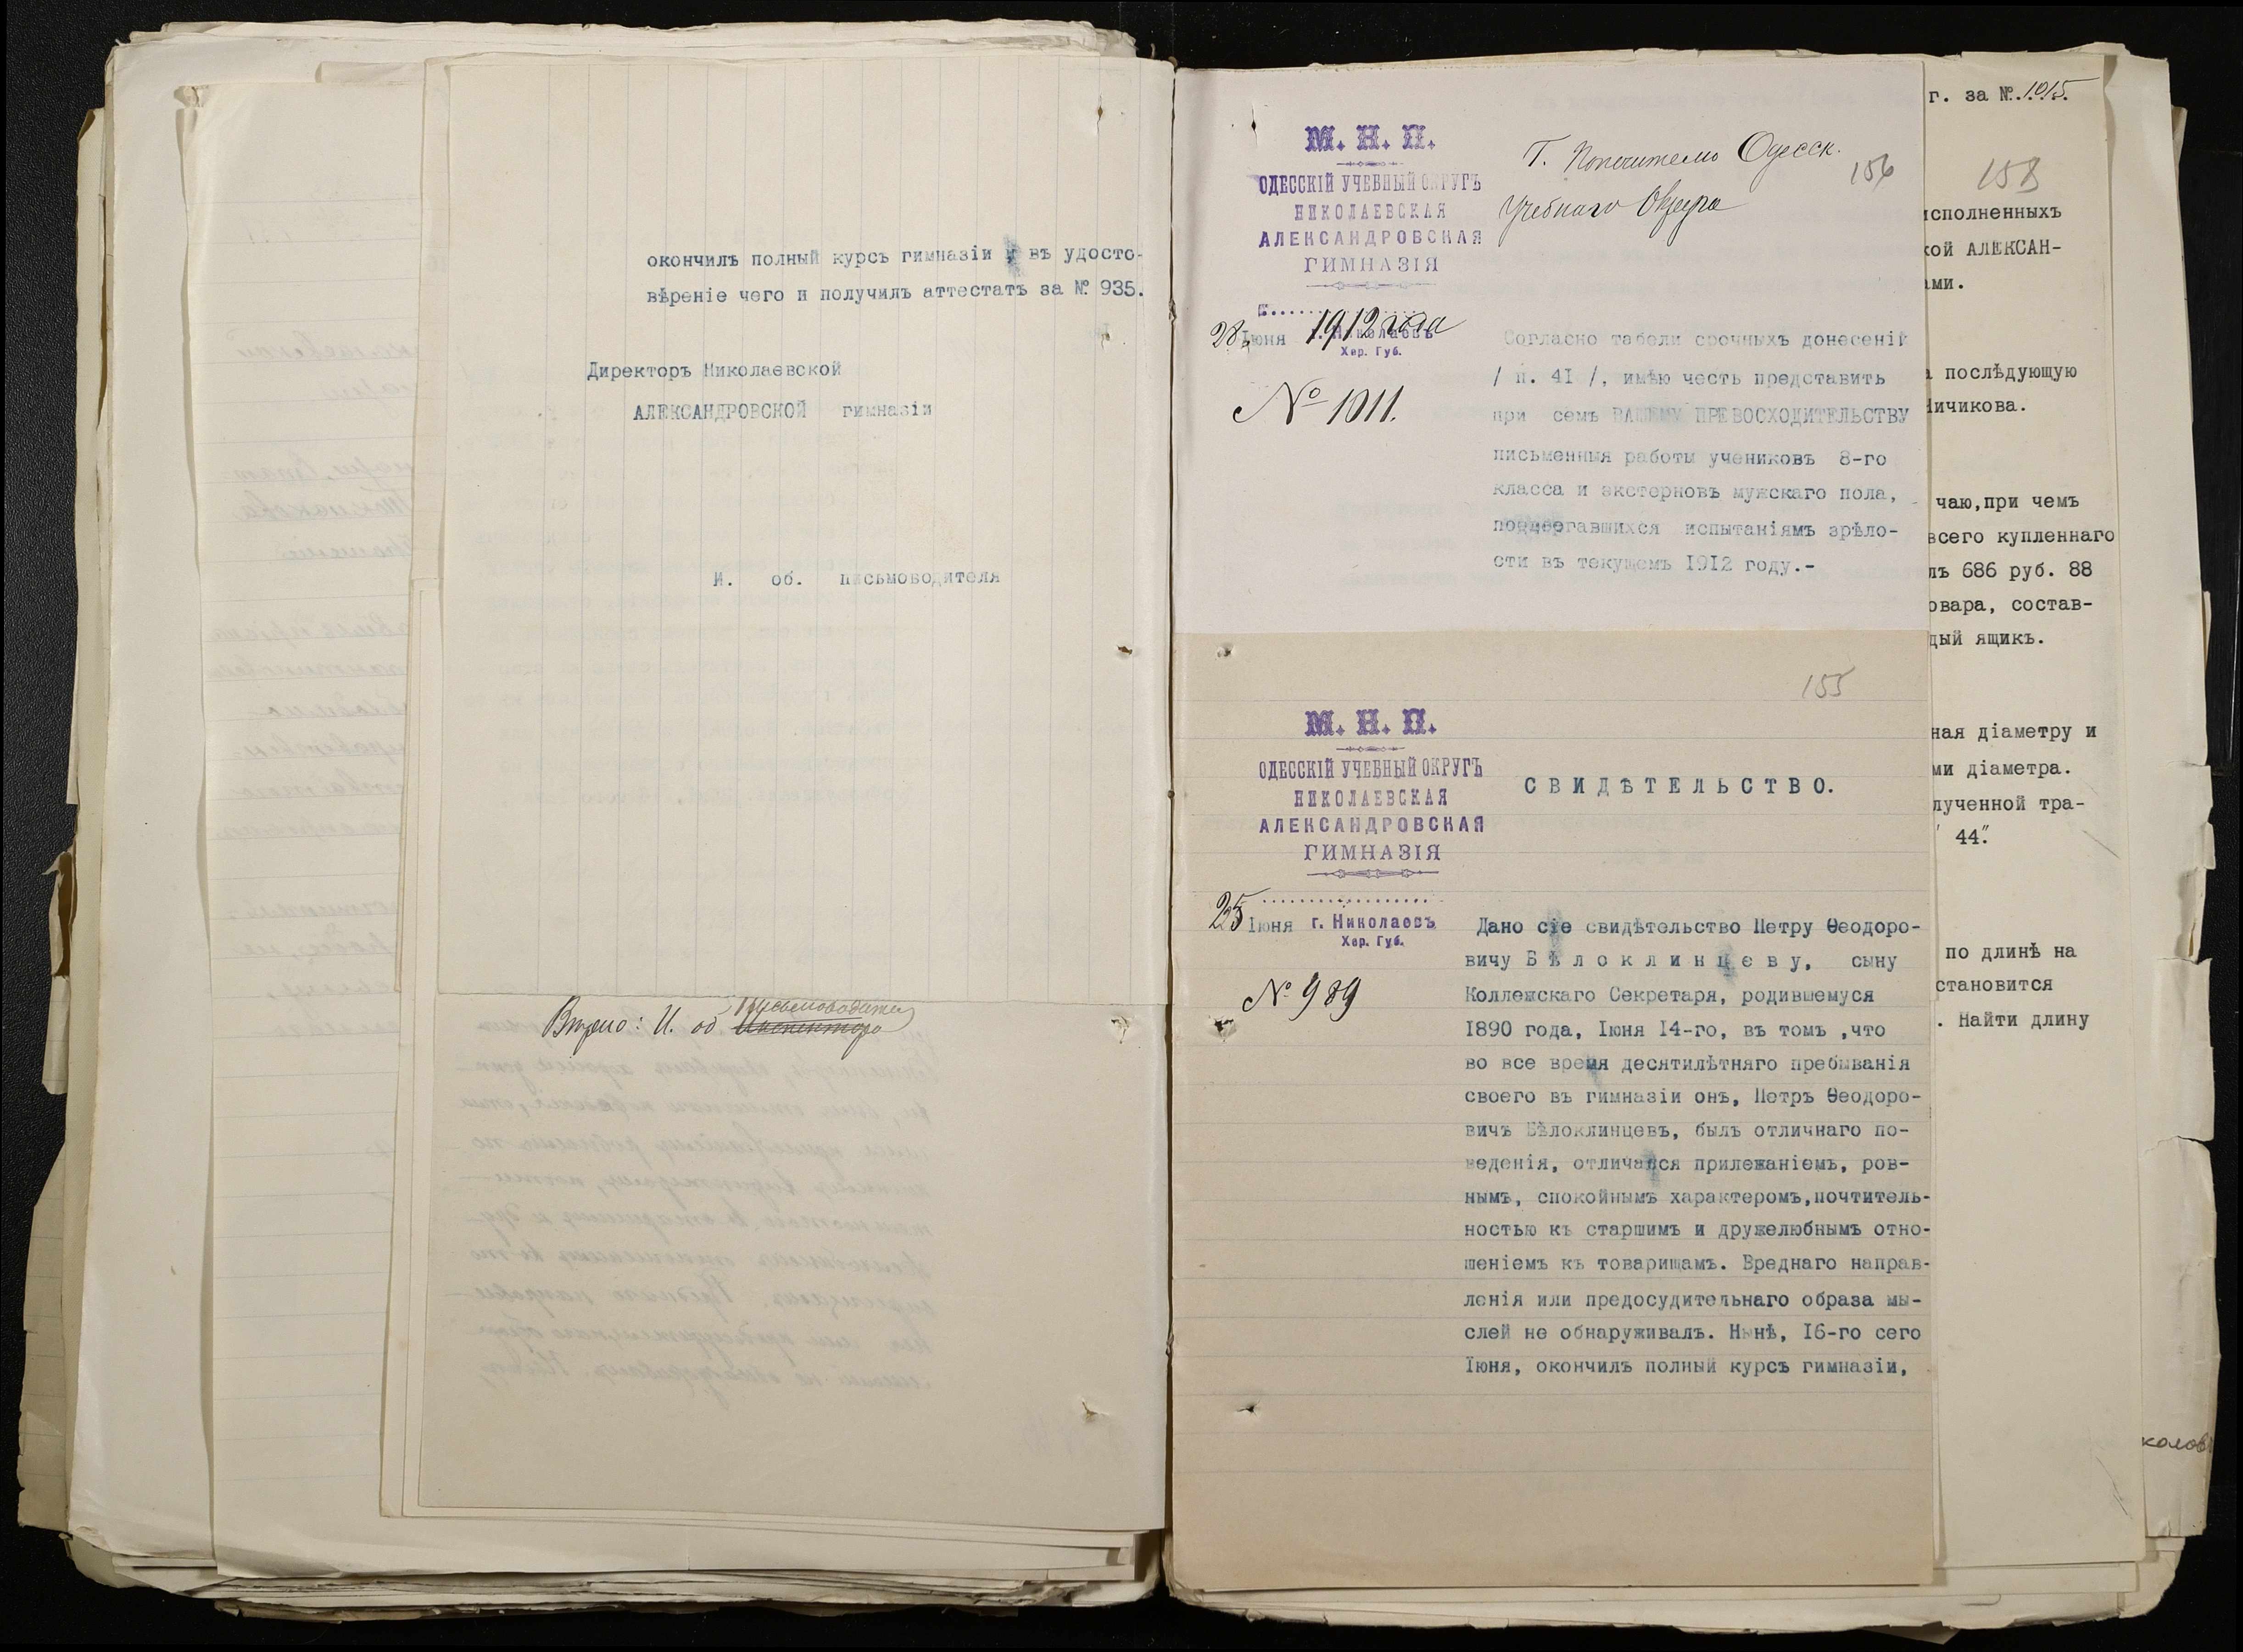 окончилъ полный курсъ гимназіи и въ удосто-
вѣреніе чего и получилъ аттестатъ за № 935.
Директоръ Николаевской
АЛЕКСАНДРОВСКОЙ гимназіи
И. об. письмоводителя
Письмоводитель
Вѣрно: И. об Инспектора
М. Н. П.
ОДЕССКІЙ УЧЕБНЫЙ ОКРУГЪ
НИКОЛАЕВСКАЯ
АЛЕКСАНДРОВСКАЯ
ГИМНАЗІЯ
28 Іюня 1912 года
г. Николаевъ
Хер. Губ.
№ 1011.
Г. Попечителю Одесск.
Учебнаго Округа
156
Согласно табели срочныхъ донесеній
/ п. 41 /, имѣю честь представить
при семъ ВАШЕМУ ПРЕВОСХОДИТЕЛЬСТВУ
письменныя работы учениковъ 8-го
класса и экстерновъ мужскаго пола,
подвергавшихся испытаніямъ зрѣло-
сти въ текущемъ 1912 году.-
155
М. Н. П.
ОДЕССКІЙ УЧЕБНЫЙ ОКРУГЪ
НИКОЛАЕВСКАЯ
АЛЕКСАНДРОВСКАЯ
ГИМНАЗІЯ
25 Іюня г. Николаевъ
Хер. Губ.
№ 989
СВИДѢТЕЛЬСТВО.
Дано сіе свидѣтельство Петру Ѳеодоро-
вичу Бѣлоклинцеву, сыну
Коллежскаго Секретаря, родившемуся
1890 года, Іюня 14-го, въ томъ ,что
во все время десятилѣтняго пребыванія
своего въ гимназіи онъ, Петръ Ѳеодоро-
вичъ Бѣлоклинцевъ, былъ отличнаго по-
веденія, отличался прилежаніемъ, ров-
нымъ, спокойнымъ характеромъ,почтитель-
ностью къ старшимъ и дружелюбнымъ отно-
шеніемъ къ товарищамъ. Вреднаго направ-
ленія или предосудительнаго образа мы-
слей не обнаруживалъ. Нынѣ, 16-го сего
Іюня, окончилъ полный курсъ гимназіи,
г. за №.1015.
158
исполненныхъ
кой АЛЕКСАН-
ами.
послѣдующую
Чичикова.
чаю,при чемъ
всего купленнаго
лъ 686 руб. 88
овара, состав-
дый ящикъ.
ная діаметру и
ми діаметра.
лученной тра-
44".
по длинѣ на
становится
. Найти длину
колов